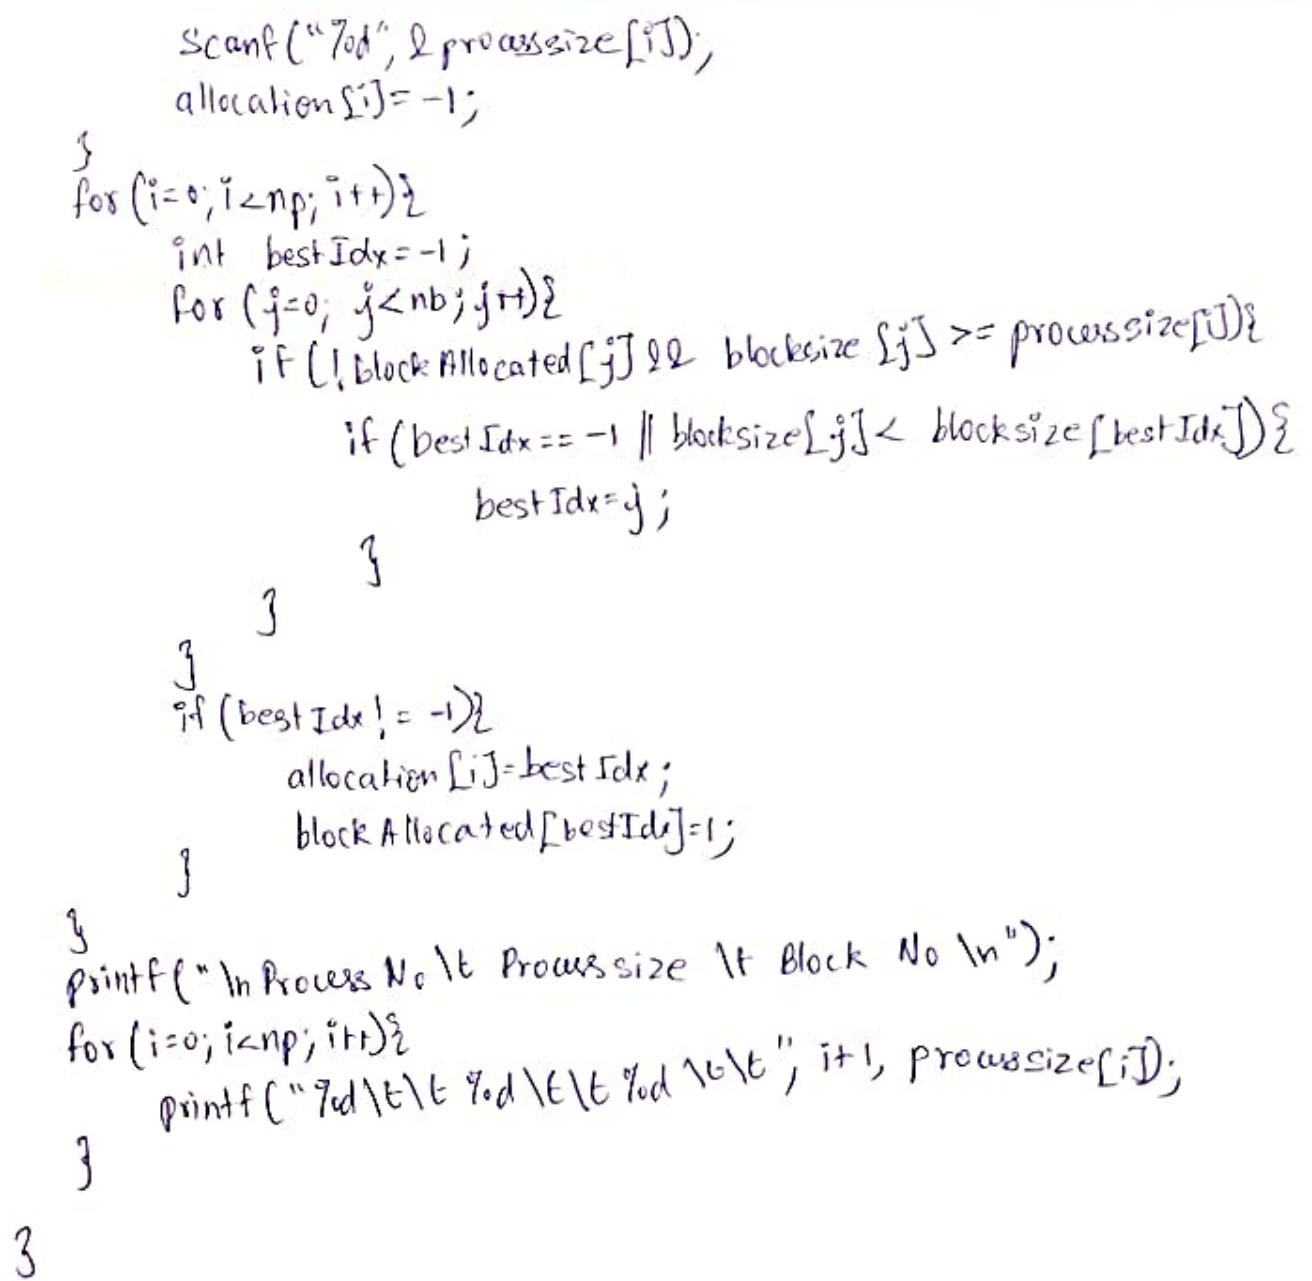 scanf("%d", &processsize[i]);
allocation[i]=-1;
}
for(i=0;i<np;i++){
int bestIdx=-1;
for(j=0; j<nb;j++){
if(!blockAllocated[j] && blocksize[j] >= processsize[i]){
if(bestIdx==-1 || blocksize[j]< blocksize[bestIdx]){
bestIdx=j;
}
}
}
if(bestIdx!=-1){
allocation[i]=bestIdx;
blockAllocated[bestIdx]=1;
}
}
printf("\nProcess No\t Processsize \t Block No \n");
for(i=0;i<np;i++){
printf("%d\t\t %d\t\t %d \t\t", i+1, processsize[i]);
}
}